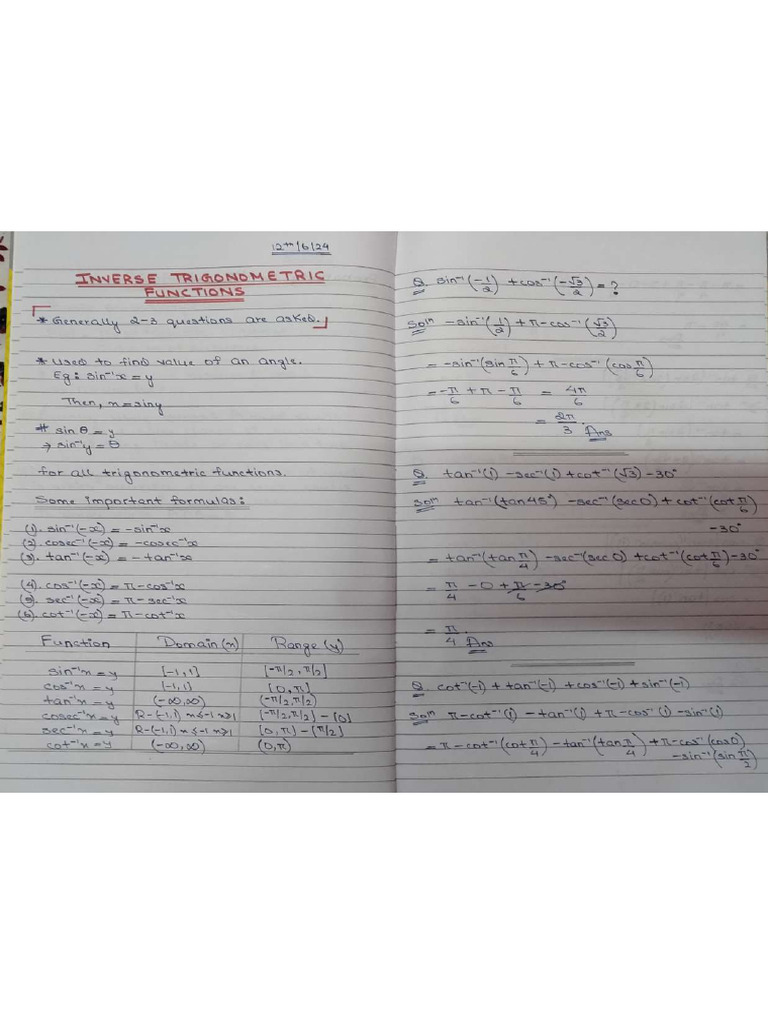 12th/6/24
INVERSE TRIGONOMETRIC
FUNCTIONS
* Generally 2-3 questions are asked.
* Used to find value of an angle.
Eg: sin⁻¹x = y
Then, x = siny
# sin θ = y
→ sin⁻¹y = θ
for all trigonometric functions.
Some important formulas:
(1). sin⁻¹(-x) = -sin⁻¹x
(2). cosec⁻¹(-x) = -cosec⁻¹x
(3). tan⁻¹(-x) = -tan⁻¹x
(4). cos⁻¹(-x) = π-cos⁻¹x
(5). sec⁻¹(-x) = π-sec⁻¹x
(6). cot⁻¹(-x) = π-cot⁻¹x
Function Domain(x) Range(y)
sin⁻¹x = y [-1,1] [-π/2, π/2]
cos⁻¹x = y [-1,1] [0,π]
tan⁻¹x = y (-∞,∞) (-π/2, π/2)
cosec⁻¹x = y R-(-1,1) x≤-1 x≥1 [-π/2,π/2] - [0]
sec⁻¹x = y R-(-1,1) x≤-1 x≥1 [0,π] - [π/2]
cot⁻¹x = y (-∞,∞) (0,π)
Q. sin⁻¹(-1/2) + cos⁻¹(-√3/2) = ?
Solⁿ -sin⁻¹(1/2) + π-cos⁻¹(√3/2)
= -sin⁻¹(sin π/6) + π-cos⁻¹(cos π/6)
= -π/6 + π - π/6 = 4π/6
= 2π/3. Ans
Q. tan⁻¹(1) - sec⁻¹(1) + cot⁻¹(√3) - 30°
Solⁿ tan⁻¹(tan45°) - sec⁻¹(sec0) + cot⁻¹(cot π/6)
-30°
= tan⁻¹(tan π/4) - sec⁻¹(sec0) + cot⁻¹(cot π/6) - 30°
= π/4 - 0 + π/6 - 30°
= π/4. Ans
Q. cot⁻¹(-1) + tan⁻¹(-1) + cos⁻¹(-1) + sin⁻¹(-1)
Solⁿ π-cot⁻¹(1) - tan⁻¹(1) + π-cos⁻¹(1) - sin⁻¹(1)
= π-cot⁻¹(cot π/4) - tan⁻¹(tan π/4) + π-cos⁻¹(cos0)
-sin⁻¹(sin π/2)